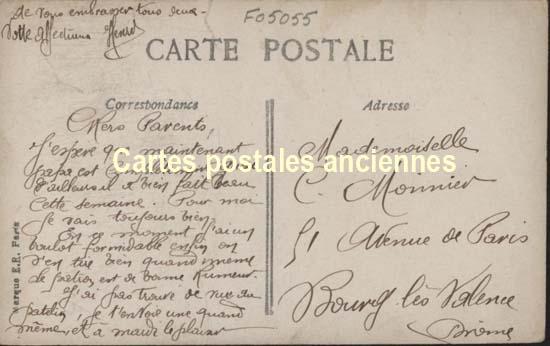 de vous embrasser tous deux.
Votre affectionné Henri
F05055
CARTE POSTALE
Correspondance
Adresse
Chers Parents,
J'espère que maintenant
papa est
d'ailleurs il a bien fait beau
cette semaine. Pour moi
je vais toujours bien.
En ce moment j'ai un
boulot formidable enfin on
s'en tire bien quand même
le patron est de bonne humeur.
J'ai pas trouvé de vue du
patelin, je t'envoie une quand
même, et à mardi le plaisir
Mademoiselle
C. Monnier
51 Avenue de Paris
Bourg lès Valence
Drôme
Marque E.R. Paris
Cartes postales anciennes